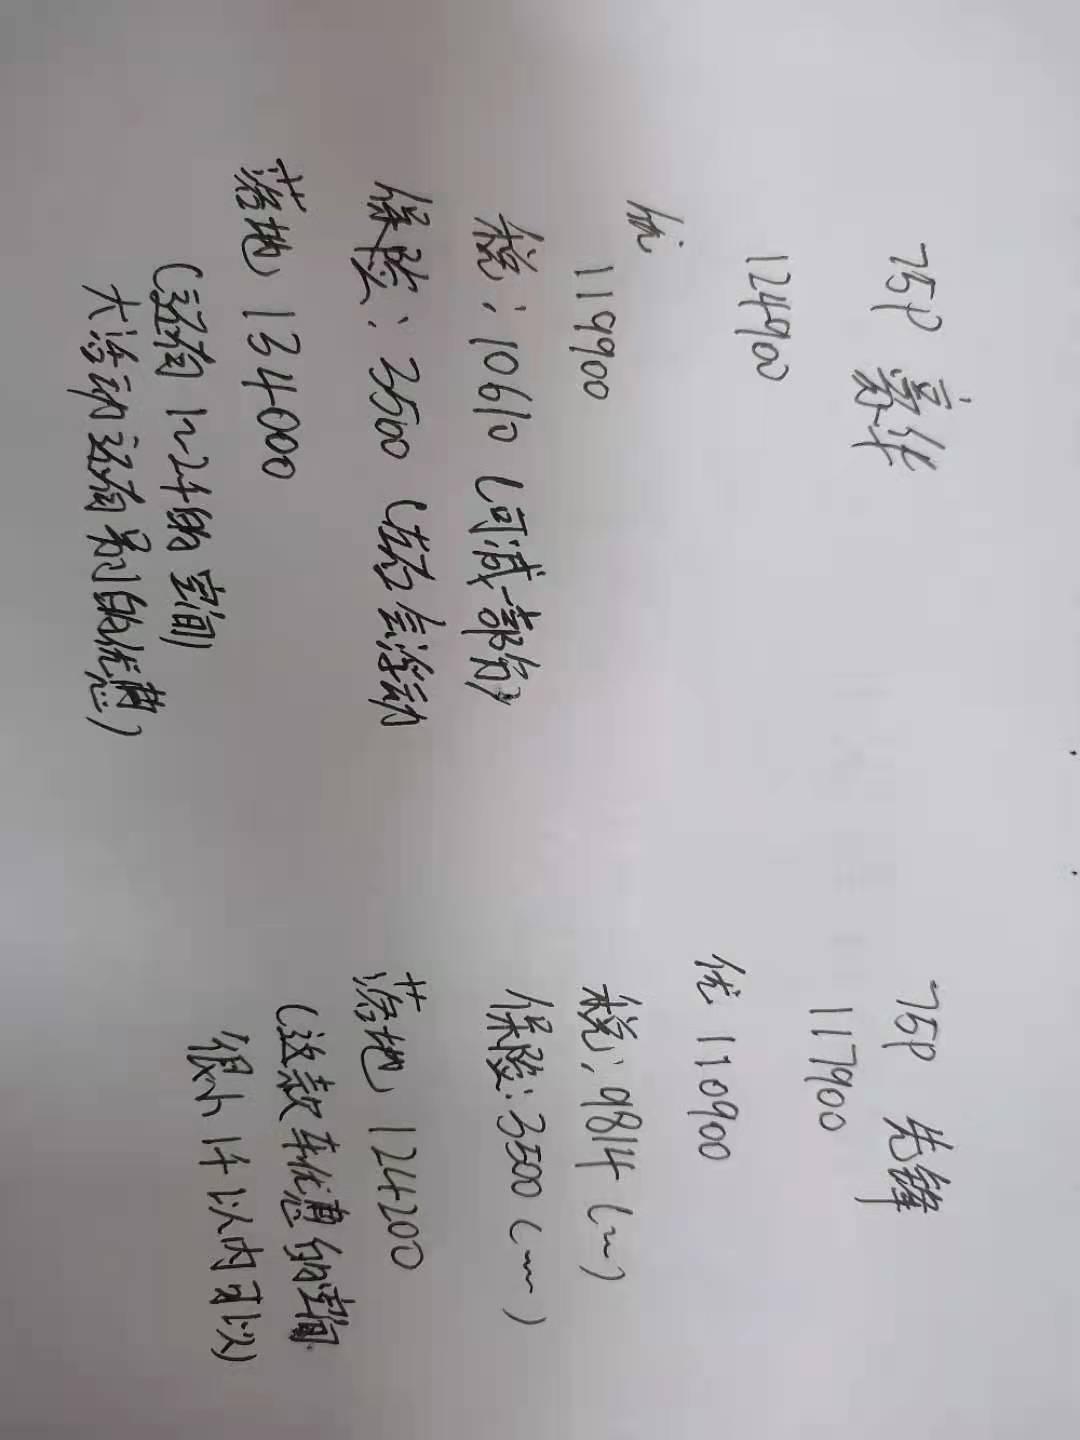 75P 豪华
124900
优
119900
税：10610（可减部份）
保险：3500（左右会浮动
落地 134000
（还有1~2千的空间
大活动还有别的优惠）
75P 先锋
117900
优 110900
税：9814（〃）
保险：3500（〃）
落地 124200
（这款车优惠的空间
很小 1千以内可以）